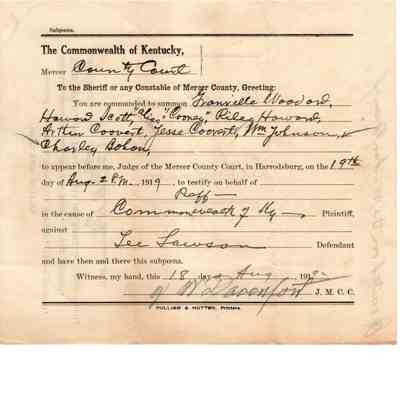 Subpoena.
The Commonwealth of Kentucky,
Mercer County Court
To the Sheriff or any Constable of Mercer County, Greeting:
You are commanded to summon Granville Woodord,
Howard Scott, "Cooney", Riley Howard,
Arthur Coovert, Jesse Coovert, Wm Johnson, &
Charley Bohon,
to appear before me, Judge of the Mercer County Court, in Harrodsburg, on the 19th
day of Aug. 2 P.M. 1919, to testify on behalf of
Paff
in the cause of Commonwealth of Ky Plaintiff,
against
Lee Lawson Defendant
and have then and there this subpoena.
Witness, my hand, this 18 day Aug 191
Davenport J. M. C. C.
PULLIAM & NUTTER, Printers.